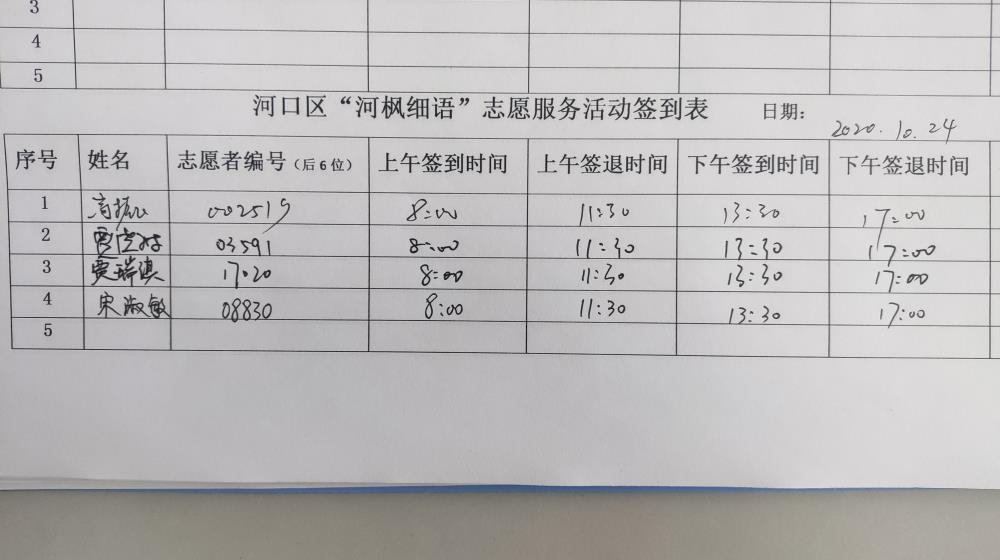 3
4
5
河口区“河枫细语”志愿服务活动签到表 日期: 2020.10.24
序号 姓名 志愿者编号(后6位) 上午签到时间 上午签退时间 下午签到时间 下午签退时间
1 002519 8:00 11:30 13:30 17:00
2 03591 8:00 11:30 13:30 17:00
3 贾瑞淇 17020 8:00 11:30 13:30 17:00
4 宋淑敏 08830 8:00 11:30 13:30 17:00
5